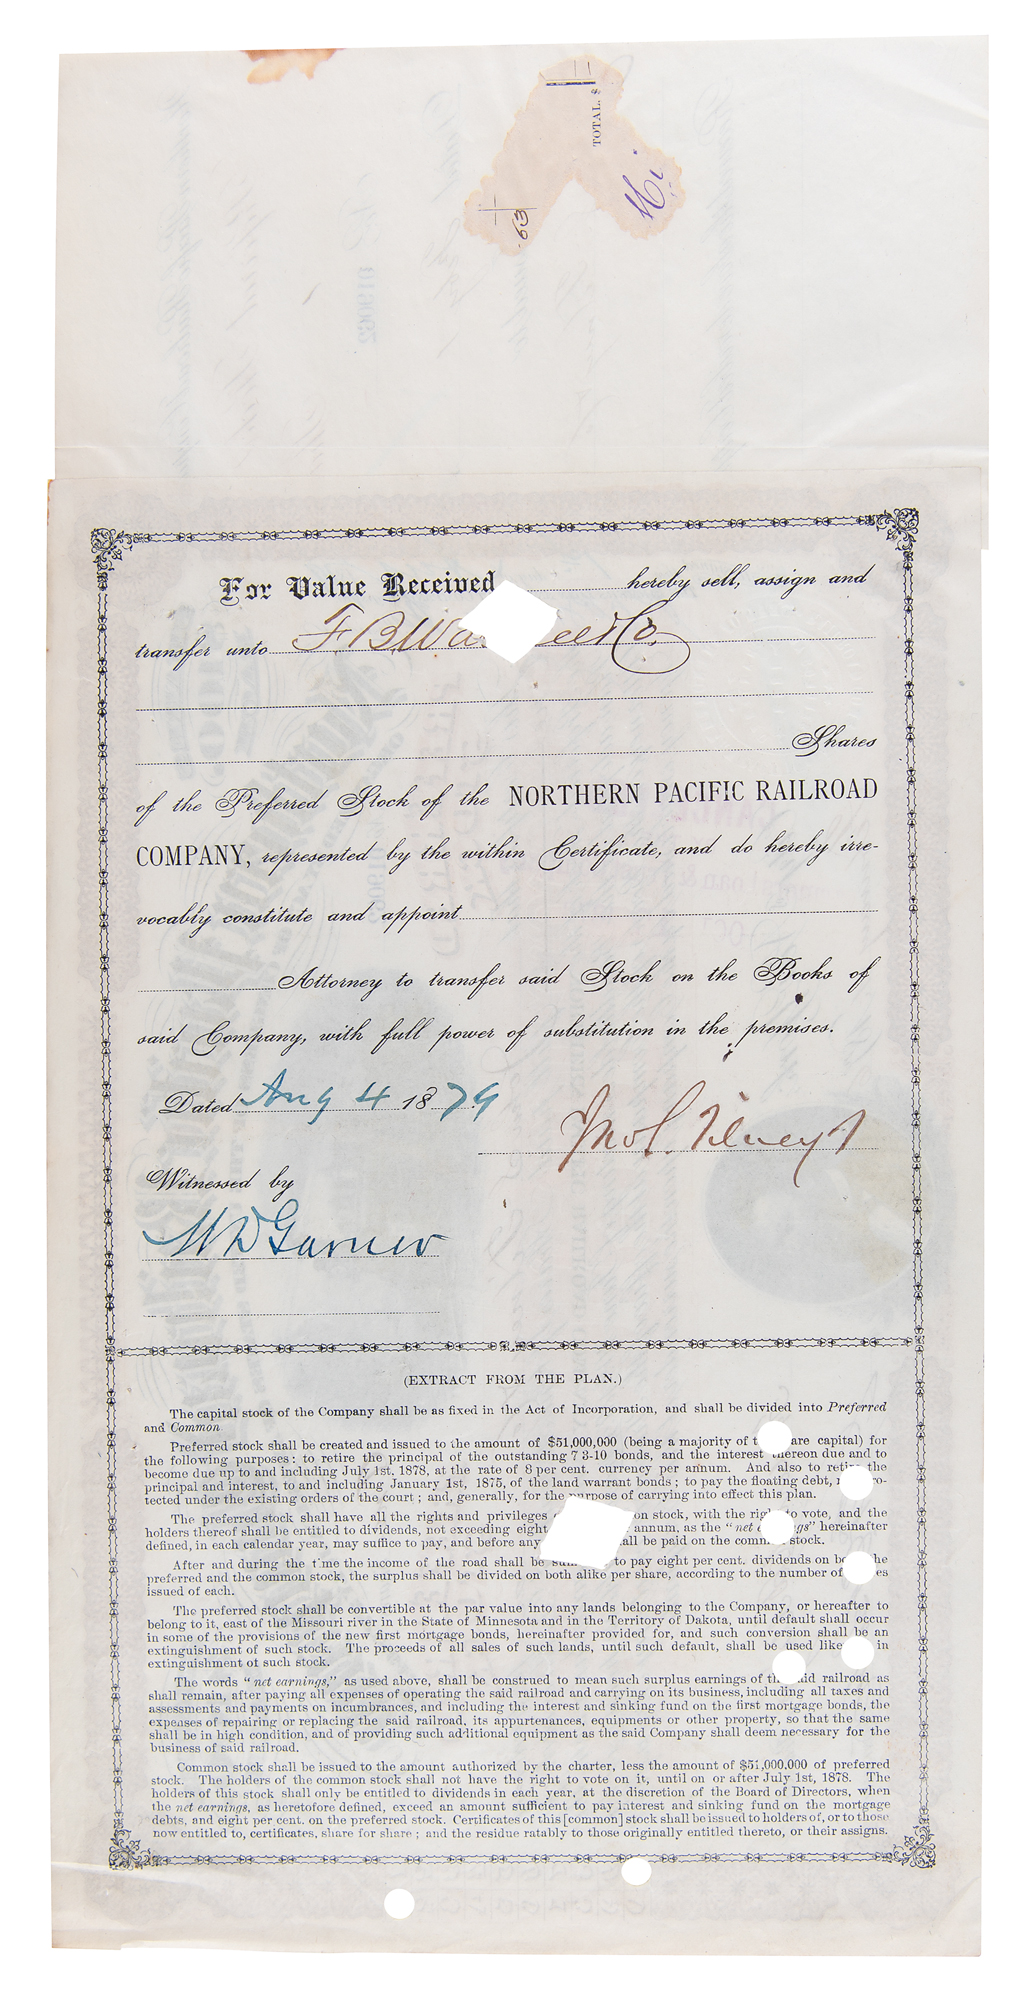 TOTAL. $
.63
For Value Received hereby sell, assign and
transfer unto F B Wa & Co.
Shares
of the Preferred Stock of the NORTHERN PACIFIC RAILROAD
COMPANY, represented by the within Certificate, and do hereby irre-
vocably constitute and appoint
Attorney to transfer said Stock on the Books of
said Company, with full power of substitution in the premises.
Dated Aug 4 1879
Witnessed by
W D Garner
(EXTRACT FROM THE PLAN.)
The capital stock of the Company shall be as fixed in the Act of Incorporation, and shall be divided into Preferred
and Common
Preferred stock shall be created and issued to the amount of $51,000,000 (being a majority of are capital) for
the following purposes: to retire the principal of the outstanding 7 3-10 bonds, and the interest thereon due and to
become due up to and including July 1st, 1878, at the rate of 8 per cent. currency per annum. And also to retire the
principal and interest, to and including January 1st, 1875, of the land warrant bonds; to pay the floating debt, ro-
tected under the existing orders of the court; and, generally, for the purpose of carrying into effect this plan.
The preferred stock shall have all the rights and privileges on stock, with the right to vote, and the
holders thereof shall be entitled to dividends, not exceeding eight annum, as the "net gs" hereinafter
defined, in each calendar year, may suffice to pay, and before any all be paid on the common stock.
After and during the time the income of the road shall be to pay eight per cent. dividends on the
preferred and the common stock, the surplus shall be divided on both alike per share, according to the number of es
issued of each.
The preferred stock shall be convertible at the par value into any lands belonging to the Company, or hereafter to
belong to it, east of the Missouri river in the State of Minnesota and in the Territory of Dakota, until default shall occur
in some of the provisions of the new first mortgage bonds, hereinafter provided for, and such conversion shall be an
extinguishment of such stock. The proceeds of all sales of such lands, until such default, shall be used like in
extinguishment of such stock.
The words "net earnings," as used above, shall be construed to mean such surplus earnings of the said railroad as
shall remain, after paying all expenses of operating the said railroad and carrying on its business, including all taxes and
assessments and payments on incumbrances, and including the interest and sinking fund on the first mortgage bonds, the
expenses of repairing or replacing the said railroad, its appurtenances, equipments or other property, so that the same
shall be in high condition, and of providing such additional equipment as the said Company shall deem necessary for the
business of said railroad.
Common stock shall be issued to the amount authorized by the charter, less the amount of $51,000,000 of preferred
stock. The holders of the common stock shall not have the right to vote on it, until on or after July 1st, 1878. The
holders of this stock shall only be entitled to dividends in each year, at the discretion of the Board of Directors, when
the net earnings, as heretofore defined, exceed an amount sufficient to pay interest and sinking fund on the mortgage
debts, and eight per cent. on the preferred stock. Certificates of this [common] stock shall be issued to holders of, or to those
now entitled to, certificates, share for share; and the residue ratably to those originally entitled thereto, or their assigns.